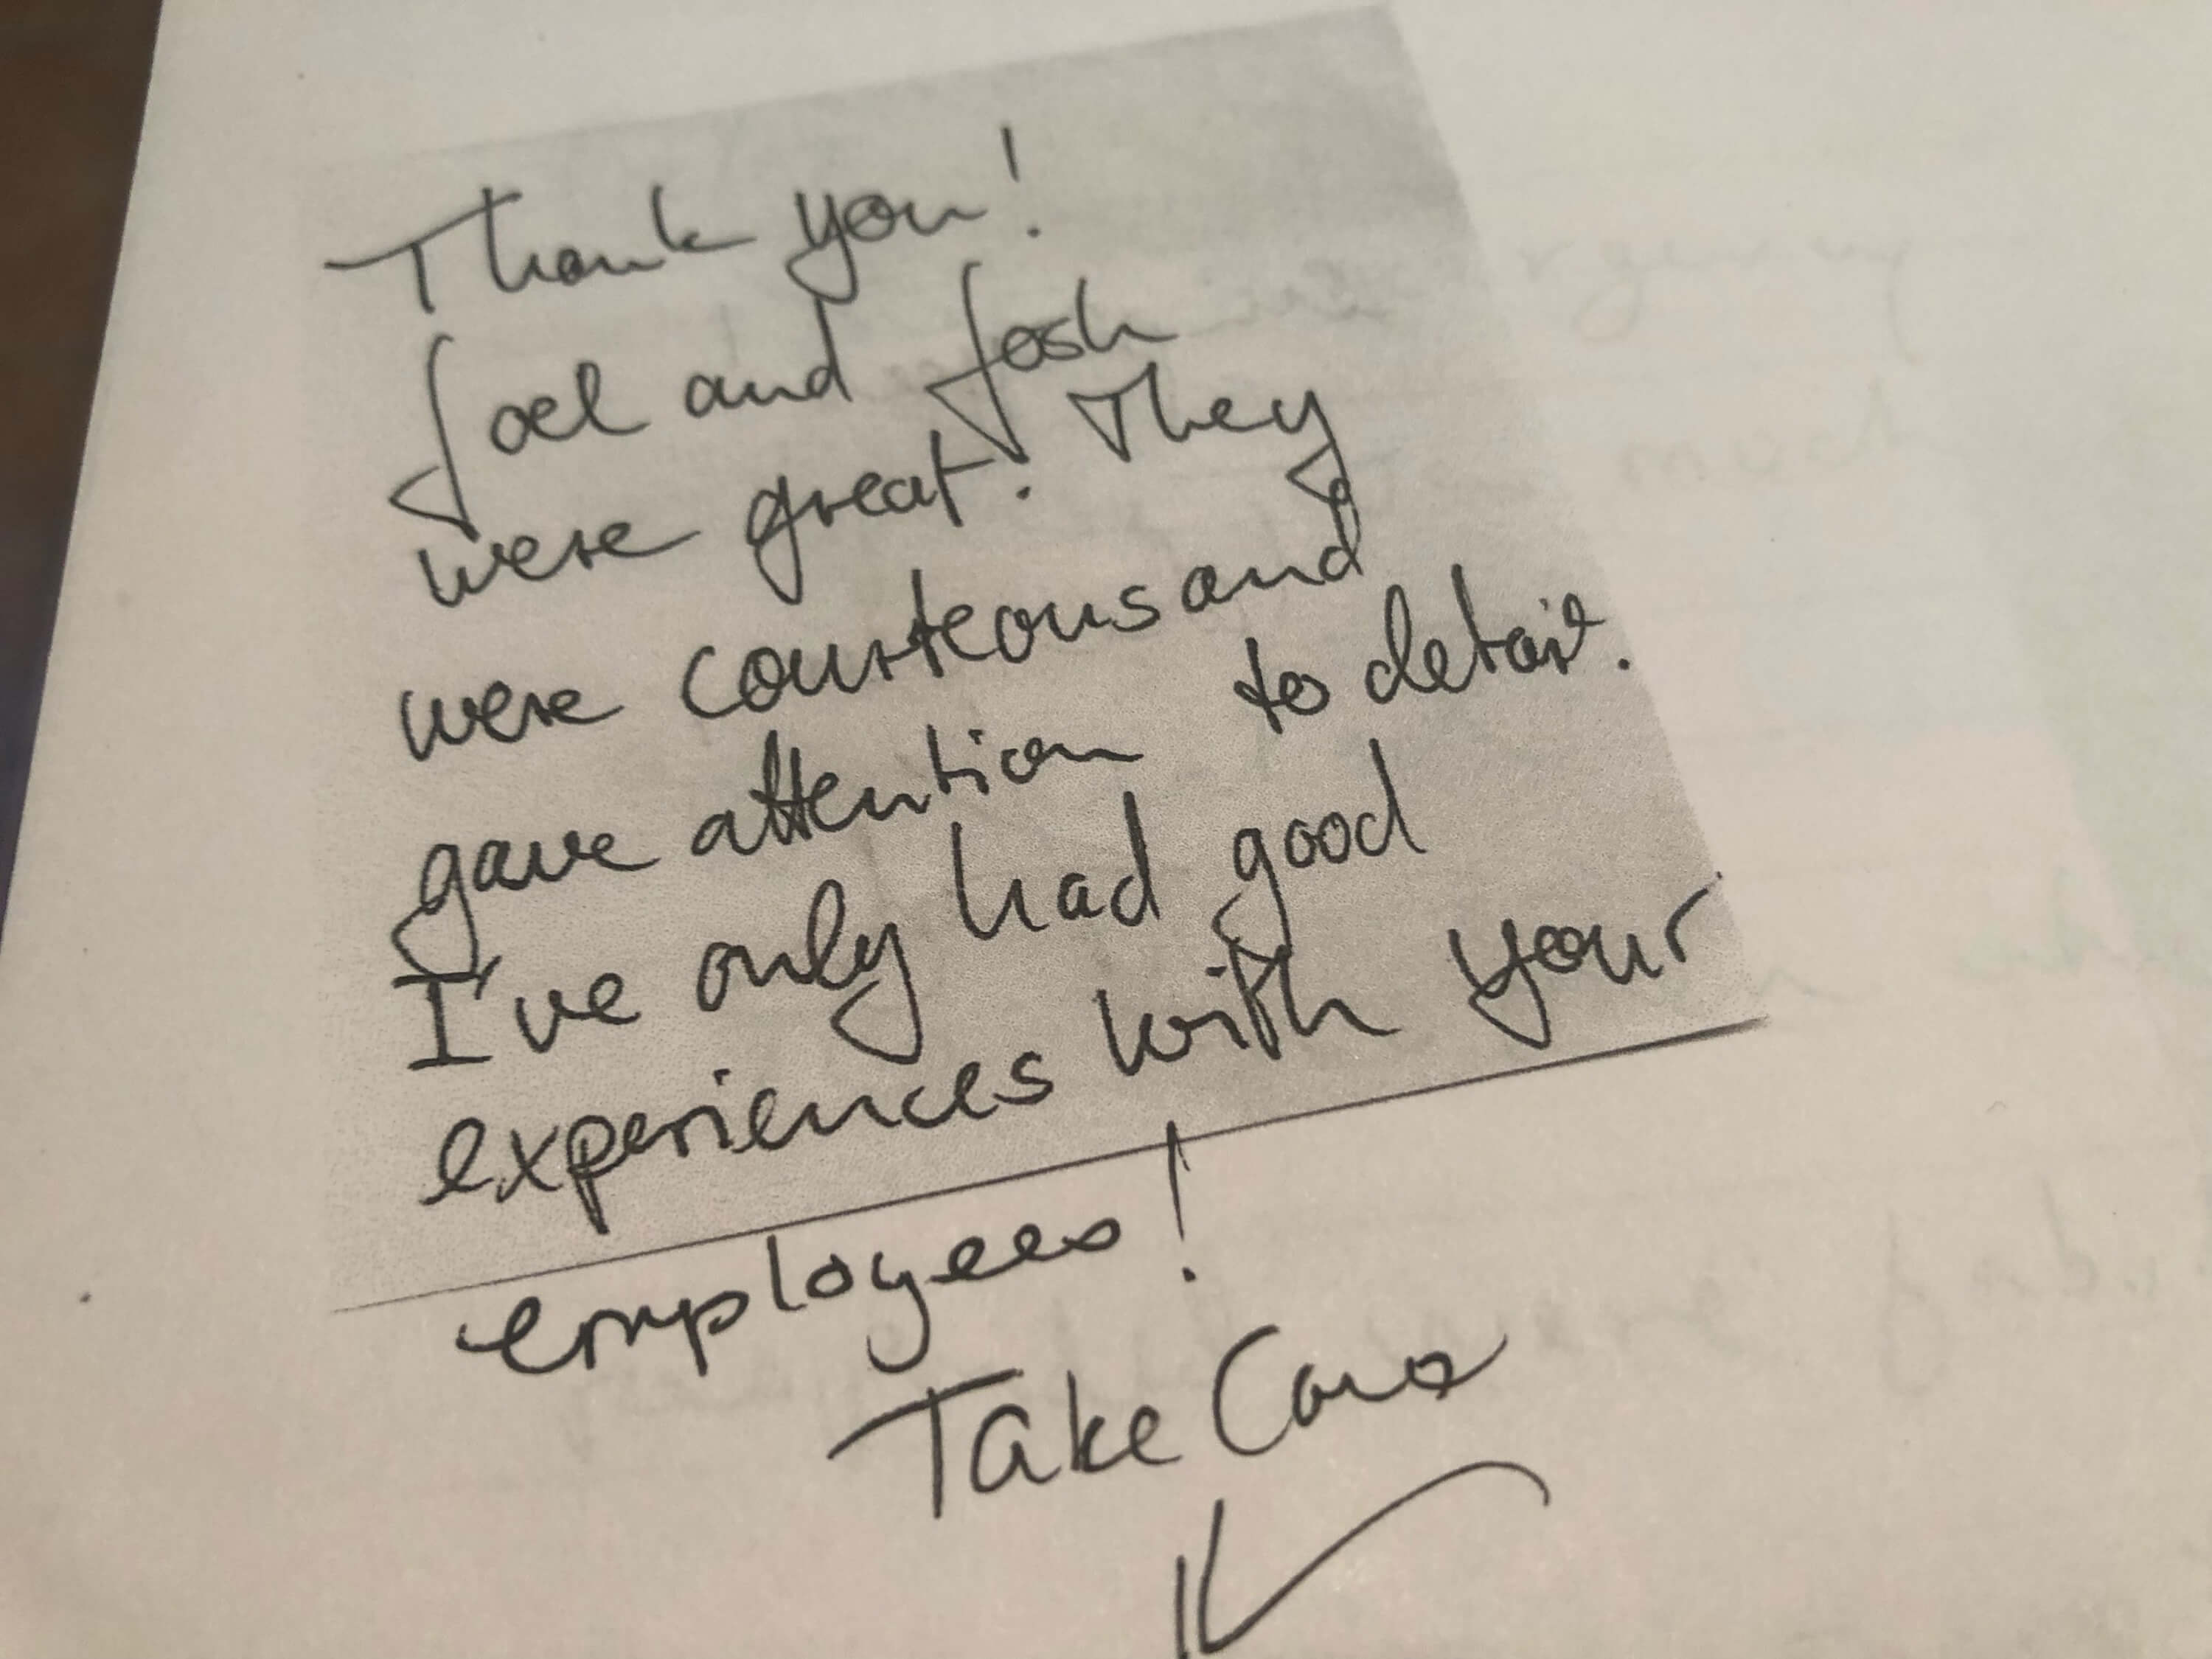 Thank you!
Joel and Josh
were great! They
were courteous and
gave attention to detail.
I've only had good
experiences with your
employees!
Take Care